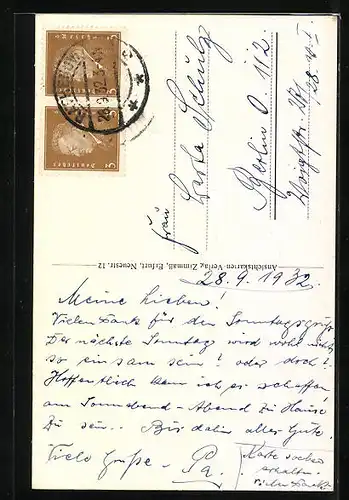 Frau
Carla Schulz
Berlin O. 112.
Voigtstr.
Ansichtskarten-Verlag Zimmaß, Erfurt, Neuestr. 12
28.9.1932
Meine Lieben!
Vielen Dank für den Sonntagsgruß
Der nächste Sonntag wird wohl nicht
so einsam sein! oder doch?
Hoffentlich kann ich es schaffen
am Sonnabend-Abend zu Hause
zu sein. Bis dahin alles Gute.
Viele Grüße - Pa.
Karte soeben
erhalten
vielen Dank
Deutsches
Deutsches